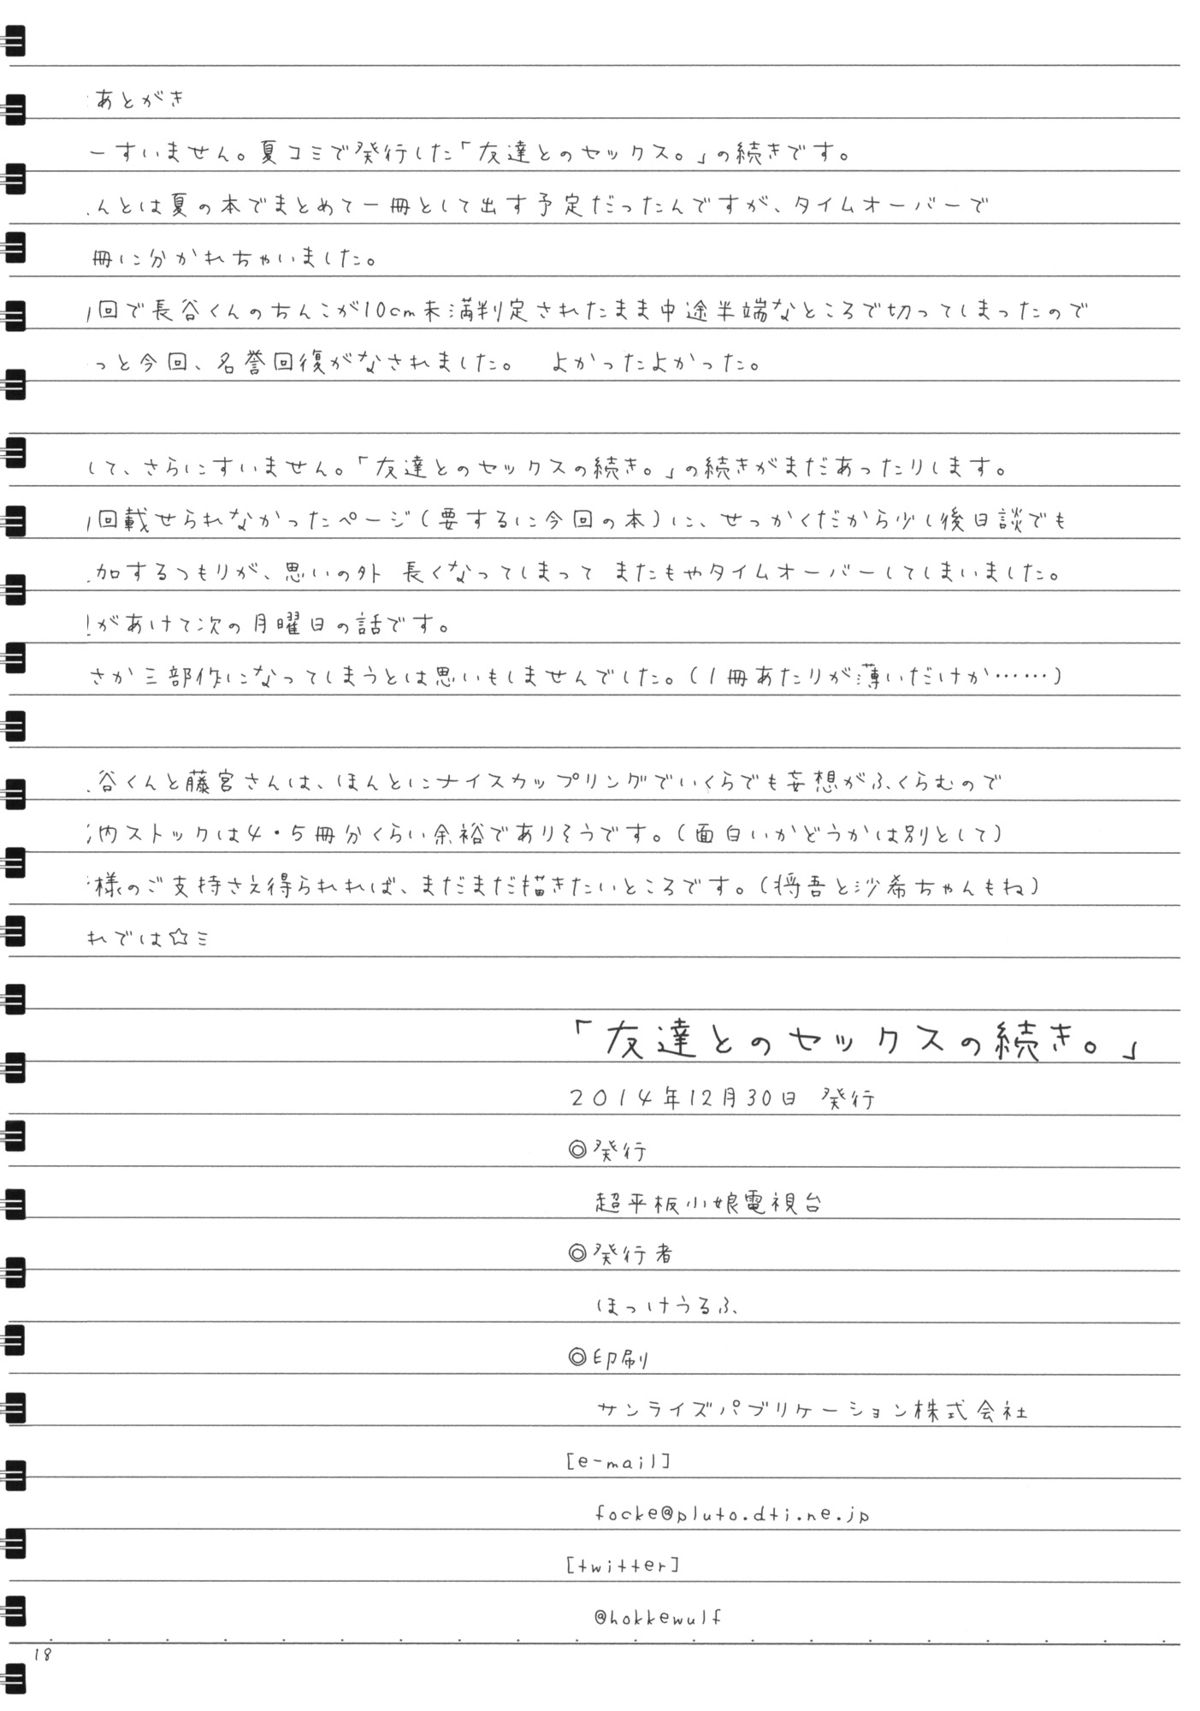 あとがき
ーすいません。夏コミで発行した「友達とのセックス。」の続きです。
んとは夏の本でまとめて一冊として出す予定だったんですが、タイムオーバーで
冊に分かれちゃいました。
回で長谷くんのちんこが10cm未満判定されたまま中途半端なところで切ってしまったので
っと今回、名誉回復がなされました。 よかったよかった。
して、さらにすいません。「友達とのセックスの続き。」の続きがまだあったりします。
回載せられなかったページ(要するに今回の本)に、せっかくだから少し後日談でも
加するつもりが、思いの外 長くなってしまって またもやタイムオーバーしてしまいました。
があけて次の月曜日の話です。
さか三部作になってしまうとは思いもしませんでした。(1冊あたりが薄いだけか……)
谷くんと藤宮さんは、ほんとにナイスカップリングでいくらでも妄想がふくらむので
内ストックは4・5冊分くらい余裕でありそうです。(面白いかどうかは別として)
様のご支持さえ得られれば、まだまだ描きたいところです。(将吾と沙希ちゃんもね)
れでは☆ミ
「友達とのセックスの続き。」
2014年12月30日 発行
◎発行
超平板小娘電視台
◎発行者
ほっけうるふ
◎印刷
サンライズパブリケーション株式会社
[e-mail]
focke@pluto.dti.ne.jp
[twitter]
@hokkewulf
18